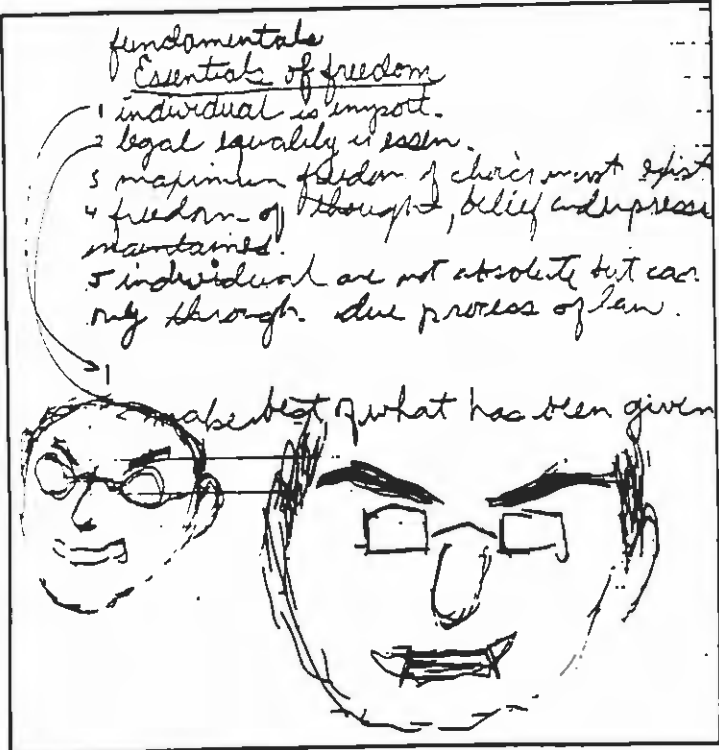 fundamentals
Essentials of freedom
1 individual is import.
2 legal equality is essen.
3 maximum freedom of choice must exist
4 freedom of thought, belief and expressi
maintained.
5 individual are not absolute but can
only through due process of law.
1
2 make best of what has been given